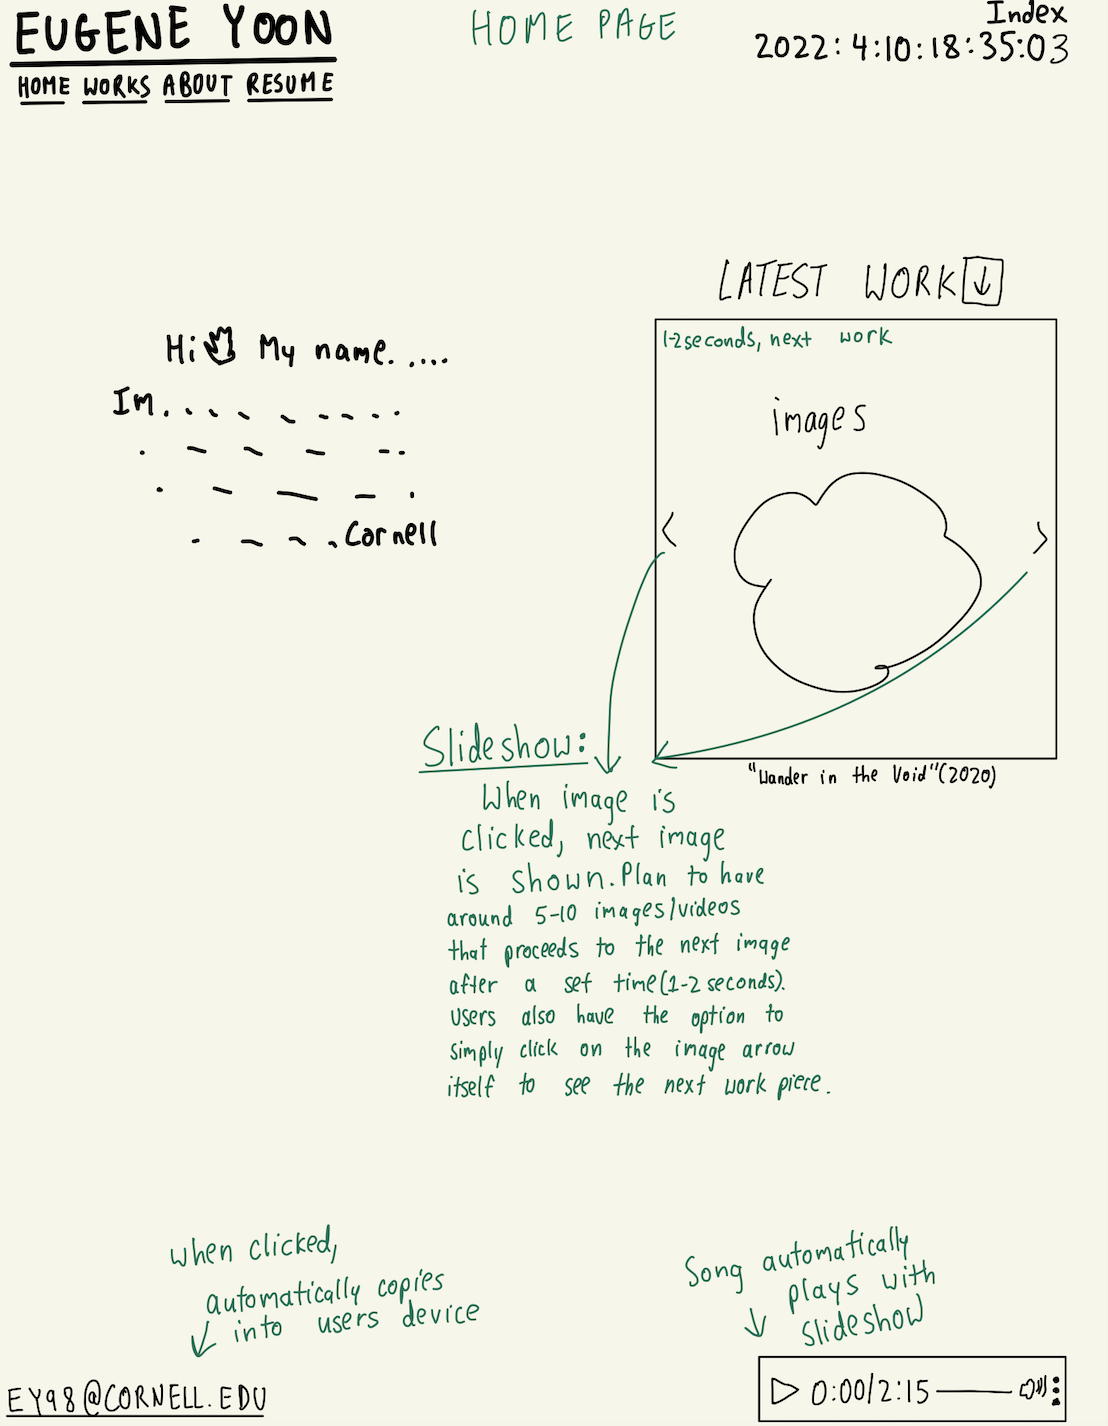 EUGENE YOON
HOME WORKS ABOUT RESUME
HOME PAGE
Index
2022:4:10:18:35:03
LATEST WORK
Hi My name.....
Im
Cornell
1-2seconds, next work
images
"Wander in the Void"(2020)
Slideshow:
When image is
clicked, next image
is shown. Plan to have
around 5-10 images/videos
that proceeds to the next image
after a set time(1-2 seconds).
Users also have the option to
simply click on the image arrow
itself to see the next work piece.
when clicked,
automatically copies
into users device
EY98@CORNELL.EDU
Song automatically
plays with
slideshow
0:00/2:15